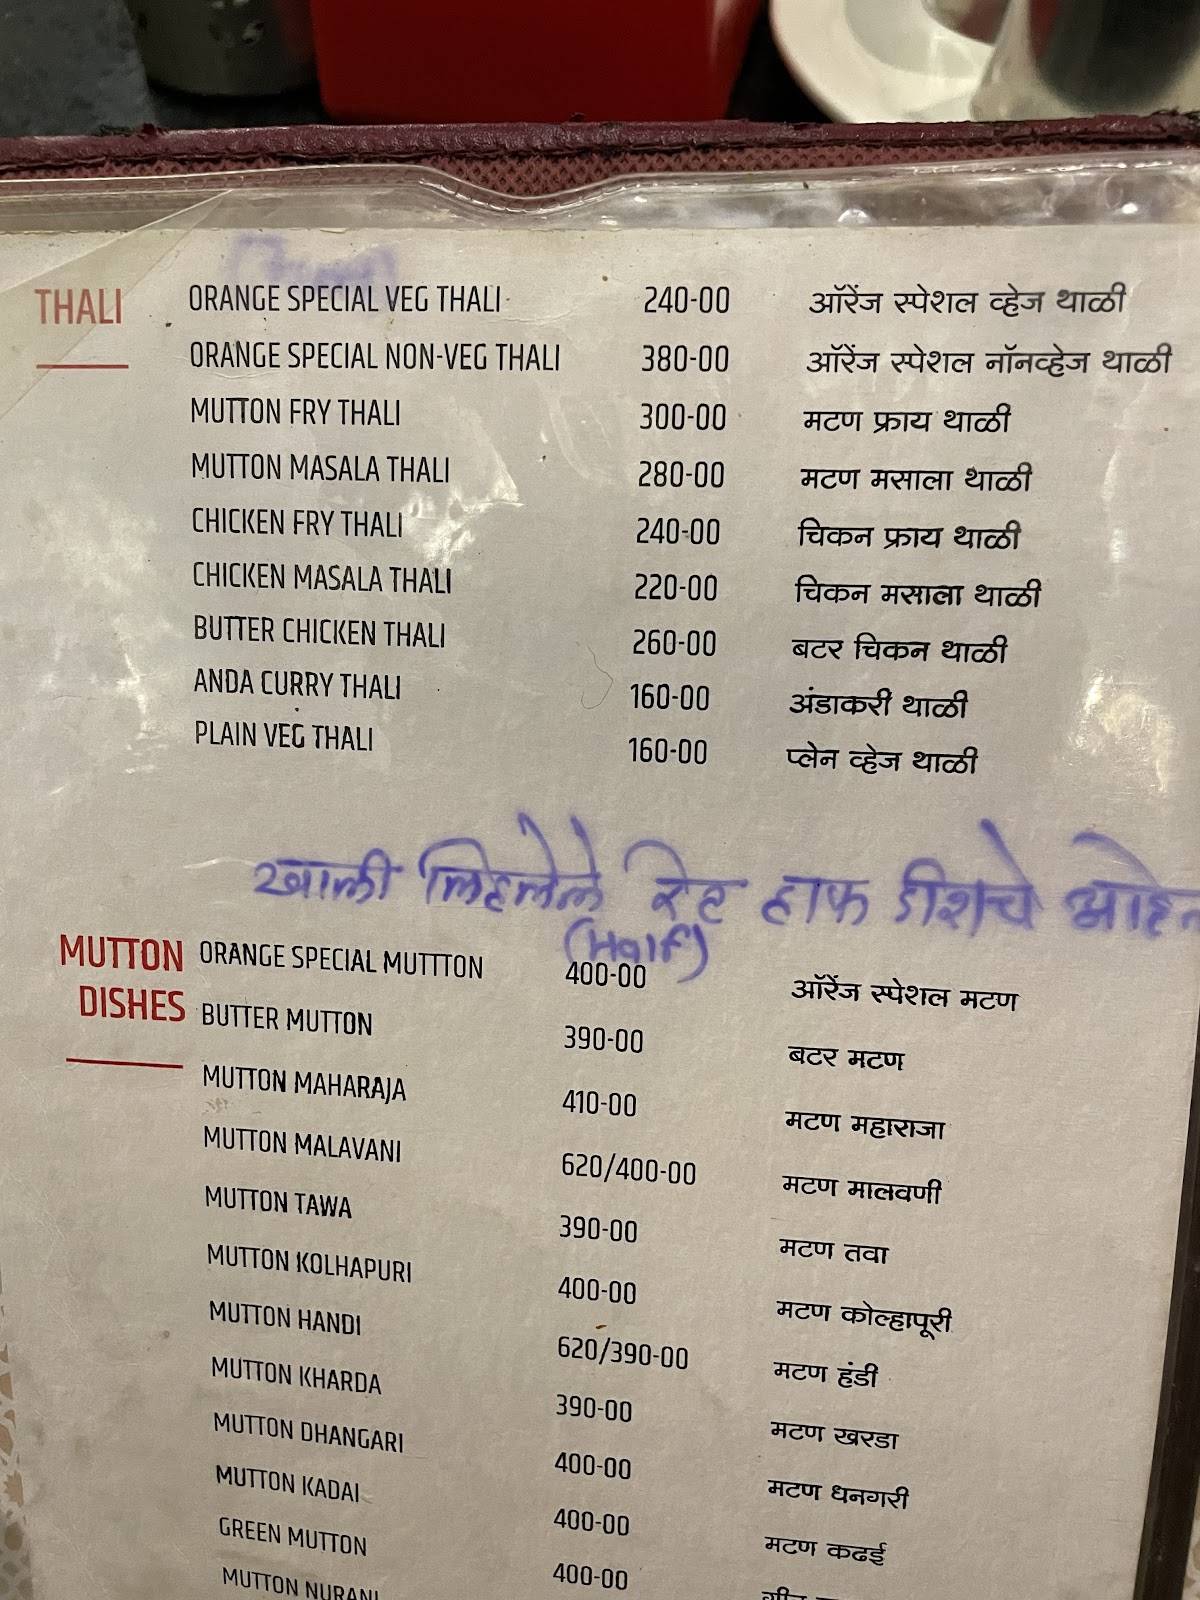 THALI
ORANGE SPECIAL VEG THALI 240-00 ऑरेंज स्पेशल व्हेज थाळी
ORANGE SPECIAL NON-VEG THALI 380-00 ऑरेंज स्पेशल नॉनव्हेज थाळी
MUTTON FRY THALI 300-00 मटण फ्राय थाळी
MUTTON MASALA THALI 280-00 मटण मसाला थाळी
CHICKEN FRY THALI 240-00 चिकन फ्राय थाळी
CHICKEN MASALA THALI 220-00 चिकन मसाला थाळी
BUTTER CHICKEN THALI 260-00 बटर चिकन थाळी
ANDA CURRY THALI 160-00 अंडाकरी थाळी
PLAIN VEG THALI 160-00 प्लेन व्हेज थाळी
खाली लिहलेले रेट हाफ डीशचे आहेत
(Half)
MUTTON DISHES
ORANGE SPECIAL MUTTTON 400-00 ऑरेंज स्पेशल मटण
BUTTER MUTTON 390-00 बटर मटण
MUTTON MAHARAJA 410-00 मटण महाराजा
MUTTON MALAVANI 620/400-00 मटण मालवणी
MUTTON TAWA 390-00 मटण तवा
MUTTON KOLHAPURI 400-00 मटण कोल्हापूरी
MUTTON HANDI 620/390-00 मटण हंडी
MUTTON KHARDA 390-00 मटण खरडा
MUTTON DHANGARI 400-00 मटण धनगरी
MUTTON KADAI 400-00 मटण कढई
GREEN MUTTON 400-00
MUTTON NURANI